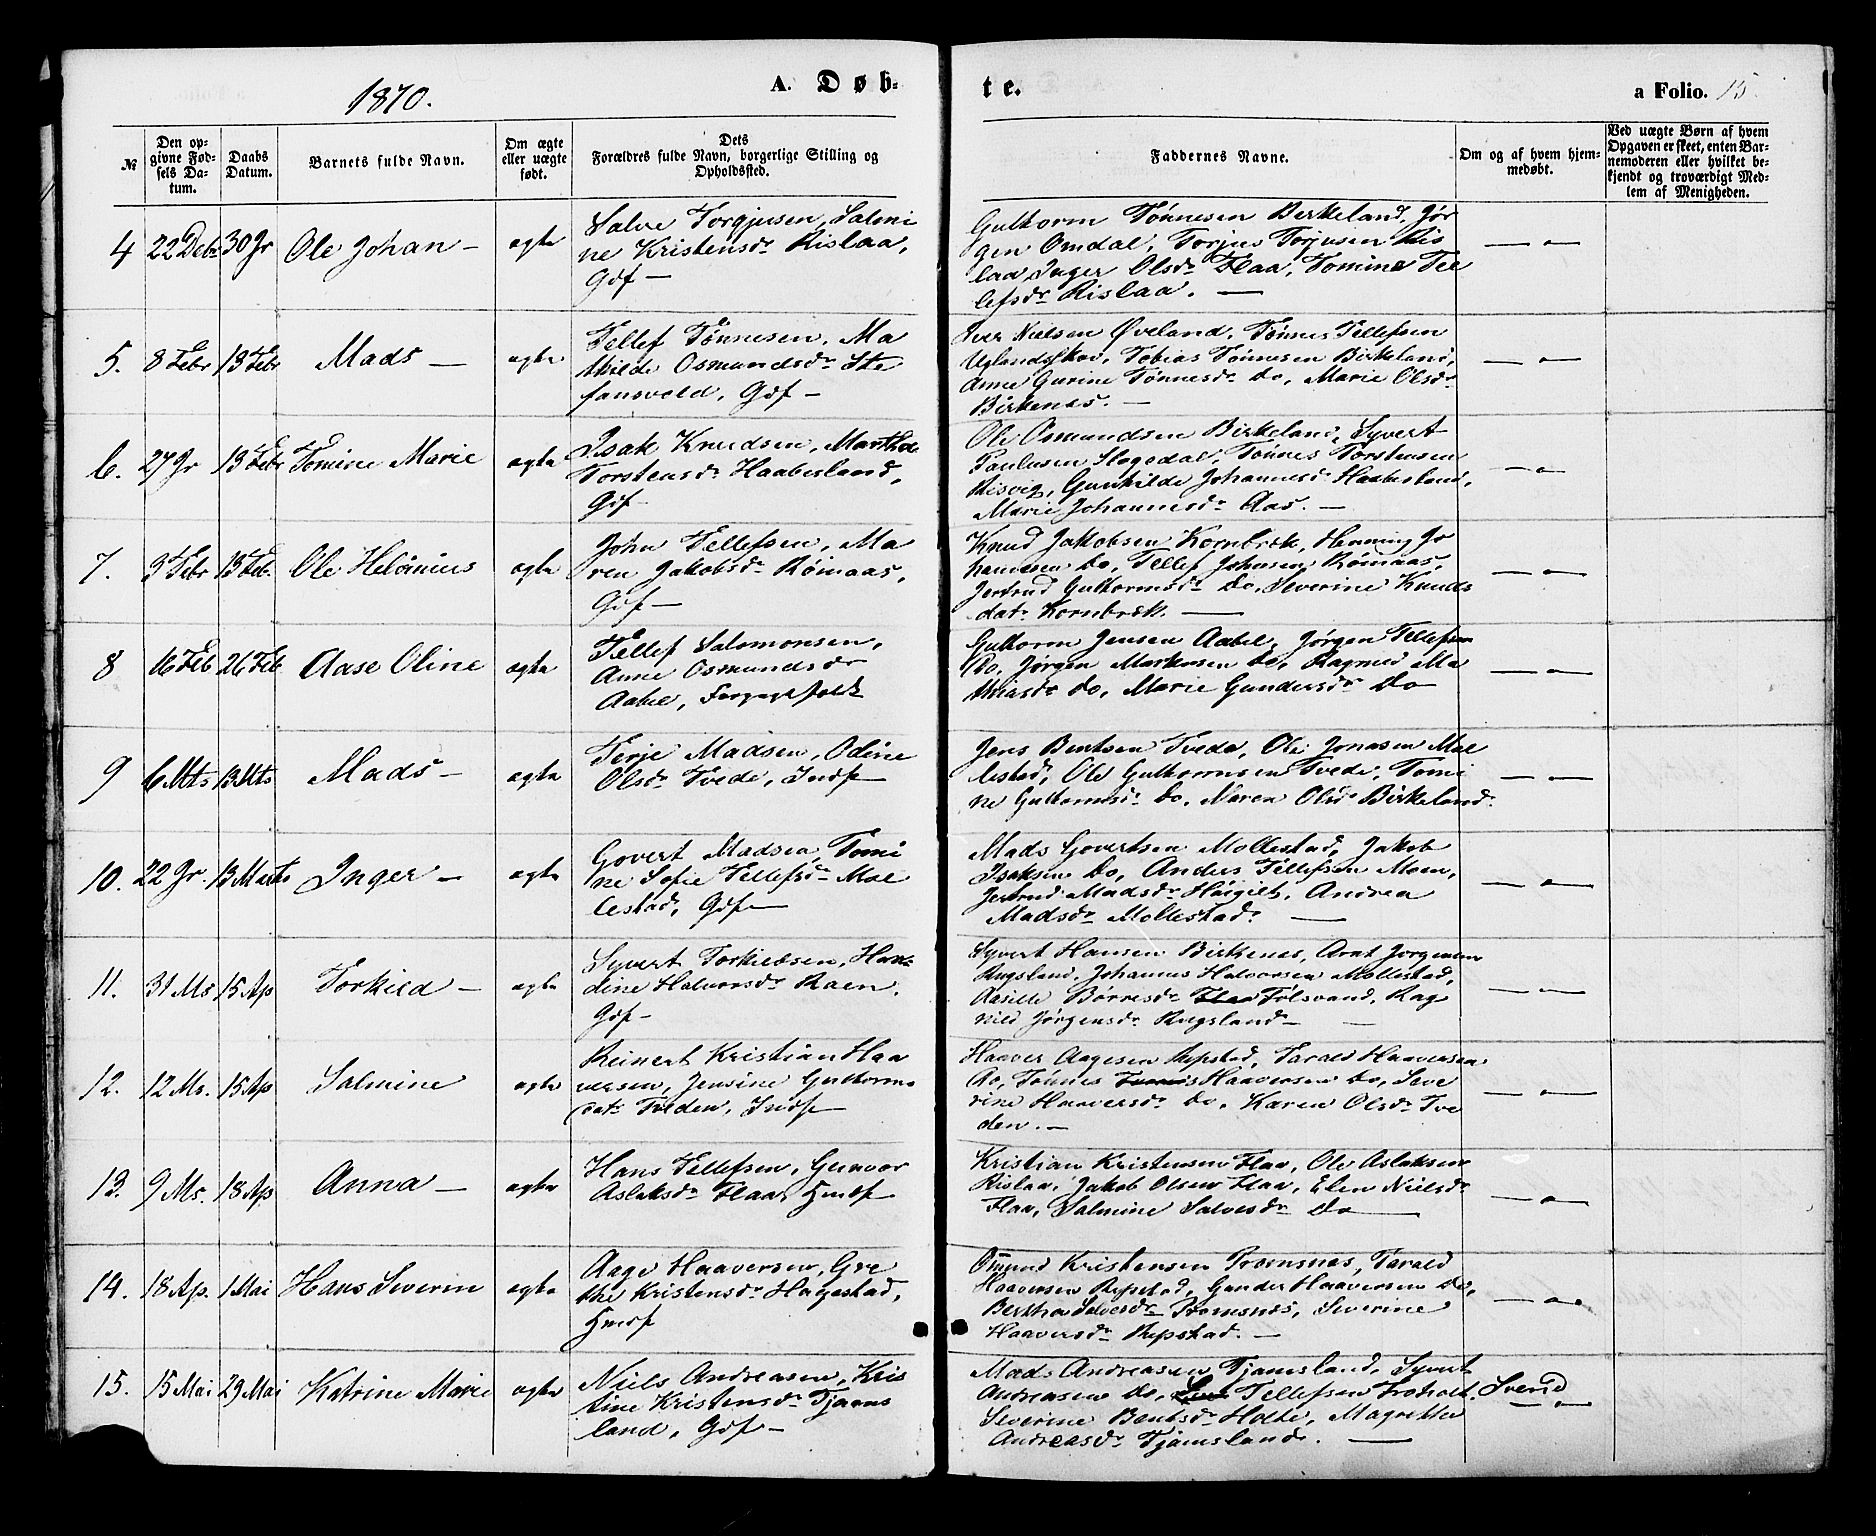 1870.
A. Døb-
te.
a Folio. 15.
№
Den op-
givne Fød-
sels Da-
tum.
Daabs
Datum.
Barnets fulde Navn.
Om ægte
eller uægte
født.
Dets
Forældres fulde Navn, borgerlige Stilling og
Opholdssted.
Faddernes Navne.
Om og af hvem hjem-
medøbt.
Ved uægte Børn af hvem
Opgaven er skeet, enten Bar-
nemoderen eller hvilket be-
kjendt og troværdigt Med-
lem af Menigheden.
4 22 Debr 30 Jr Ole Johan — ægte
Salve Torgjusen, Salmi
ne Kristensdr Rislaa,
Gdf —
Guttorm Tønnesen Birkeland, Jør
gen Omdal, Torjus Torjusen Ris
laa, Inger Olsdr Flaa, Tomine Tel
lefsdr Rislaa. —
5. 8 Febr 13 Febr Mads — ægte
Tellef Tønnesen, Ma
thilde Osmundsdr Ste
fansvold, Gdf —
Iver Nielsen Øveland, Tønnes Tellefsen
Uglandsskov, Tobias Tønnesen Birkeland,
Anne Gurine Tønnesdr do, Marie Olsdr
Birkenes. —
6. 27 Jr 13 Febr Tomine Marie ægte
Isak Knudsen, Marthe
Torstensdr Haabesland,
Gdf —
Ole Osmundsen Birkeland, Syvert
Paulusen Høgedal, Tønnes Torstensen
Risvig, Gunhilde Johannesdr Haabesland,
Marie Johannesdr Aas. —
7. 3 Febr 13 Feb. Ole Helonius ægte
John Tellefsen, Ma
ren Jakobsdr Rømaas,
Gdf —
Knud Jakobsen Kornbrek, Henning Jo
hannesen do, Tellef Johnsen Rømaas,
Jertrud Guttormsdr do, Severine Knuds
datr Kornbrek. —
8 16 Feb 26 Feb Aase Oline ægte
Tellef Salomonsen,
Anne Osmundsdr
Aabel,
Guttorm Jensen Aabel, Jørgen Tellefsen
do, Jørgen Markusen do, Ragnild Ma
thiasdr do, Marie Gundersdr do
9 6 Mts 13 Mts Mads — ægte
Terje Madsen, Odine
Olsdr Tvede, Indf
Jens Bentsen Tvede, Ole Jonasen Mol
lestad, Ole Guttormsen Tvede, Tomi
ne Guttormsdr do, Maren Olsdr Birkeland.
10. 22 Jr. 13 Marts Inger — ægte
Govert Madsen, Tomi
ne Sofie Tellefsdr Mol
lestad, Gdf —
Mads Govertsen Mollestad, Jakob
Isaksen do, Anders Tellefsen Moen,
Jertrud Madsdr Høigilt, Andrea
Madsdr Mollestad. —
11. 31 Ms 15 Ap Torkild — ægte
Syvert Torkildsen, Han
dine Halvorsdr Raen,
Gdf —
Syvert Hansen Birkenes, Arnt Jørgensen
Rugsland, Johannes Halvorsen Mollestad,
Aasille Børresdr Flaa Følsvand, Rag
nild Jørgensdr Rugsland —
12. 12 Ms. 15 Ap Salmine ægte
Reinert Kristian Haa
versen, Jensine Guttorms
datr Tveden, Indf
Haaver Aagesen Repstad, Tarald Haaversen
do, Tønnes Haaversen do, Seve
rine Haaversdr do, Karen Olsdr Tve
den. —
13. 9 Ms. 18 Ap Anna — ægte
Hans Tellefsen, Gunvor
Aslaksdr Flaa, Hmdf
Kristian Kristensen Flaa, Ole Aslaksen
Rislaa, Jakob Olsen Flaa, Elen Nielsdr
Flaa, Salmine Salvesdr do —
14. 18 Ap. 1 Mai Hans Severin ægte
Aage Haaversen, Gre
the Kristensdr Hagestad,
Hmdf
Omund Kristensen Tromsnes, Tarald
Haaversen Repstad, Gunder Haaversen do,
Berthe Salvesdr Tromsnes, Severine
Haaversdr Repstad. —
15. 15 Mai 29 Mai Katrine Marie ægte
Niels Andreasen, Kris
tine Kristensdr Tjams
land, Gdf —
Mads Andreasen Tjamsland, Syvert
Andreasen do, Tellefsen Froholt, Svend
Severine Bentsdr Holte, Magrethe
Andreasdr Tjamsland. —